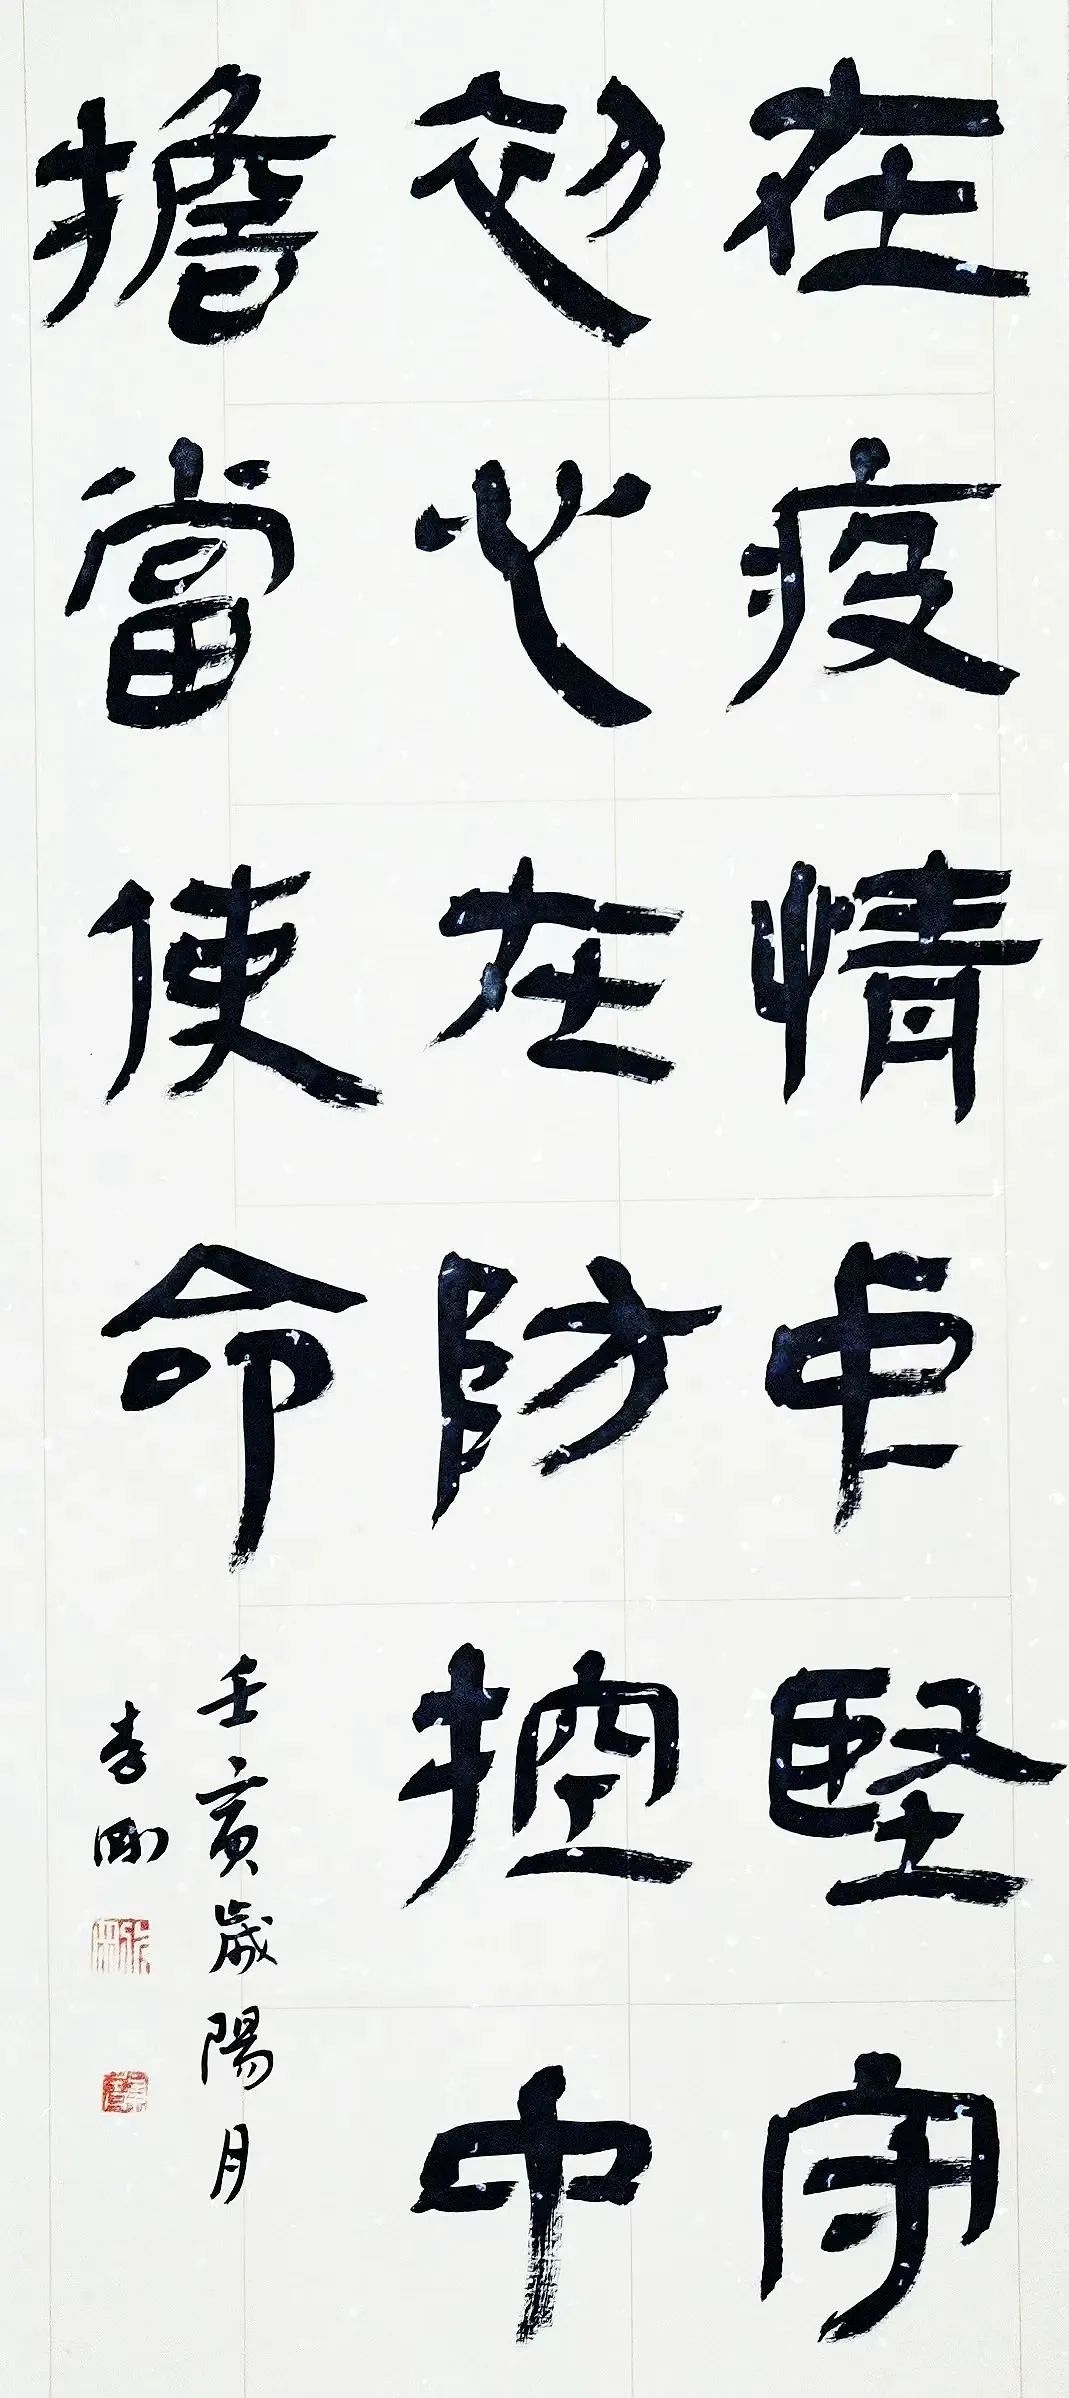 在疫情中堅守
初心在防控中
擔當使命
壬寅歲陽月
李剛